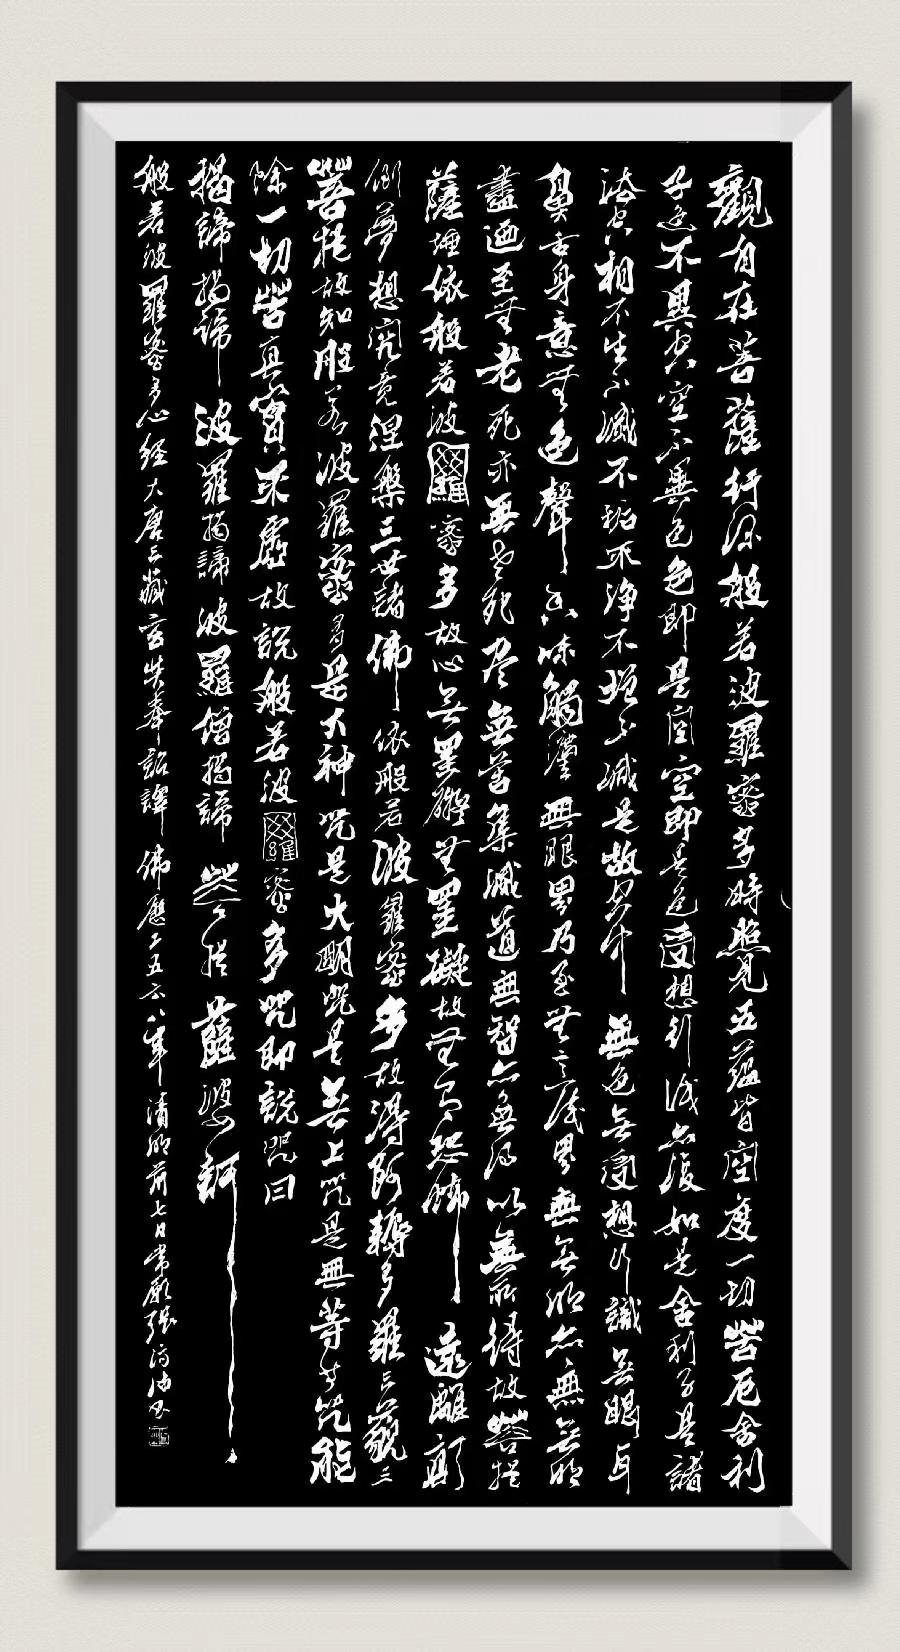 觀自在菩薩行深般若波羅蜜多時照見五蘊皆空度一切苦厄舍利
子色不異空空不異色色即是空空即是色受想行識亦復如是舍利子是諸
法空相不生不滅不垢不淨不增不減是故空中無色無受想行識無眼耳
鼻舌身意無色聲香味觸法無眼界乃至無意識界無無明亦無無明
盡乃至無老死亦無老死盡無苦集滅道無智亦無得以無所得故菩提
薩埵依般若波羅蜜多故心無罣礙無罣礙故無有恐怖遠離顛
倒夢想究竟涅槃三世諸佛依般若波羅蜜多故得阿耨多羅三藐三
菩提故知般若波羅蜜多是大神咒是大明咒是無上咒是無等等咒能
除一切苦真實不虛故說般若波羅蜜多咒即說咒曰
揭諦揭諦波羅揭諦波羅僧揭諦菩提薩婆訶
般若波羅蜜多心經大唐三藏玄奘奉詔譯佛歷二五六八年清明前七日